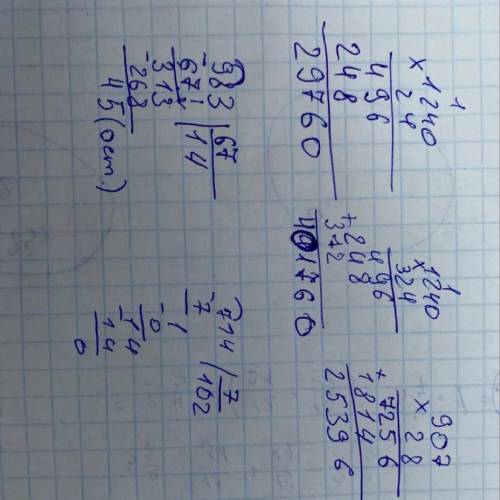 1
× 1240
24
496
248
29760
1
1240
× 324
496
+ 248
372
401760
907
× 28
7256
+ 1814
25396
983 | 67
- 67 | 14
313
- 268
45 (ост.)
714 / 7
- 7 102
1
- 0
14
- 14
0